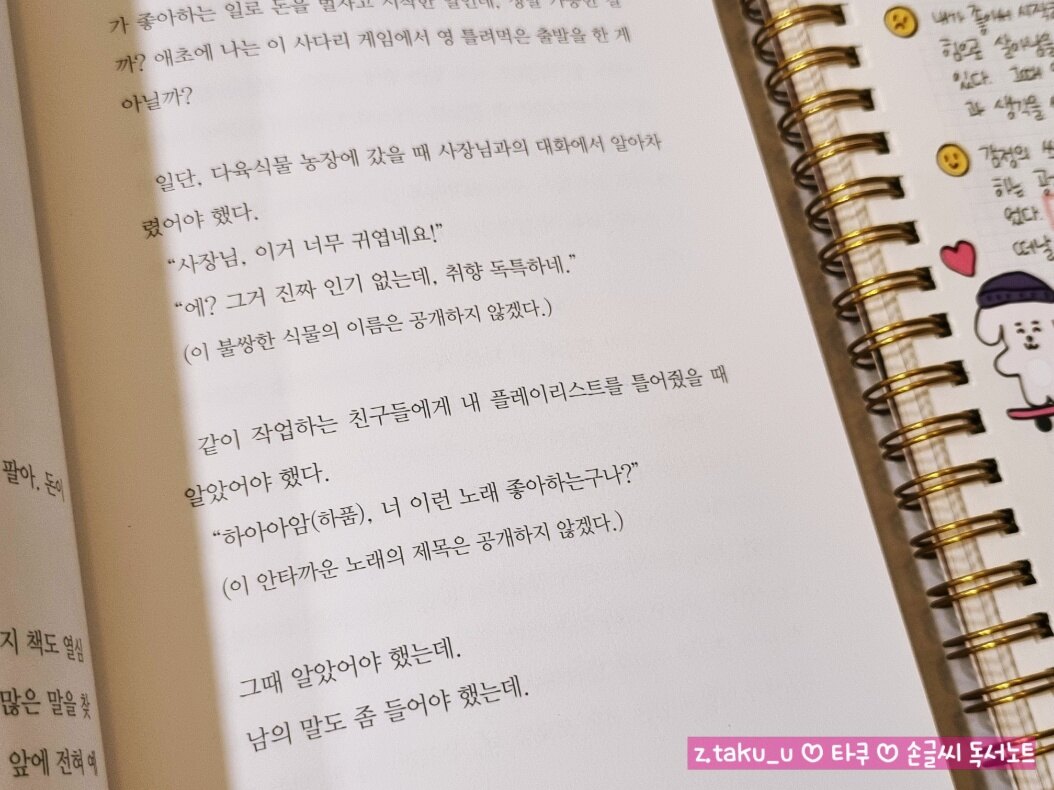 가 좋아하는 일로 돈을 벌자고 시작한 일인데, 정말 가능한 일
까? 애초에 나는 이 사다리 게임에서 영 틀려먹은 출발을 한 게
아닐까?
일단, 다육식물 농장에 갔을 때 사장님과의 대화에서 알아차
렸어야 했다.
“사장님, 이거 너무 귀엽네요!”
“에? 그거 진짜 인기 없는데, 취향 독특하네.”
(이 불쌍한 식물의 이름은 공개하지 않겠다.)
같이 작업하는 친구들에게 내 플레이리스트를 틀어줬을 때
알았어야 했다.
“하아아암(하품), 너 이런 노래 좋아하는구나?”
(이 안타까운 노래의 제목은 공개하지 않겠다.)
그때 알았어야 했는데.
남의 말도 좀 들어야 했는데.
팔아, 돈이
지 책도 열심
많은 말을 찾
앞에 전혀 예
내가 좋아서 시작
힘으로 살아남을
있다. 그때
과 생각을
감정의
하는
었다.
떠날
z.taku_u ♡ 타쿠 ♡ 손글씨 독서노트